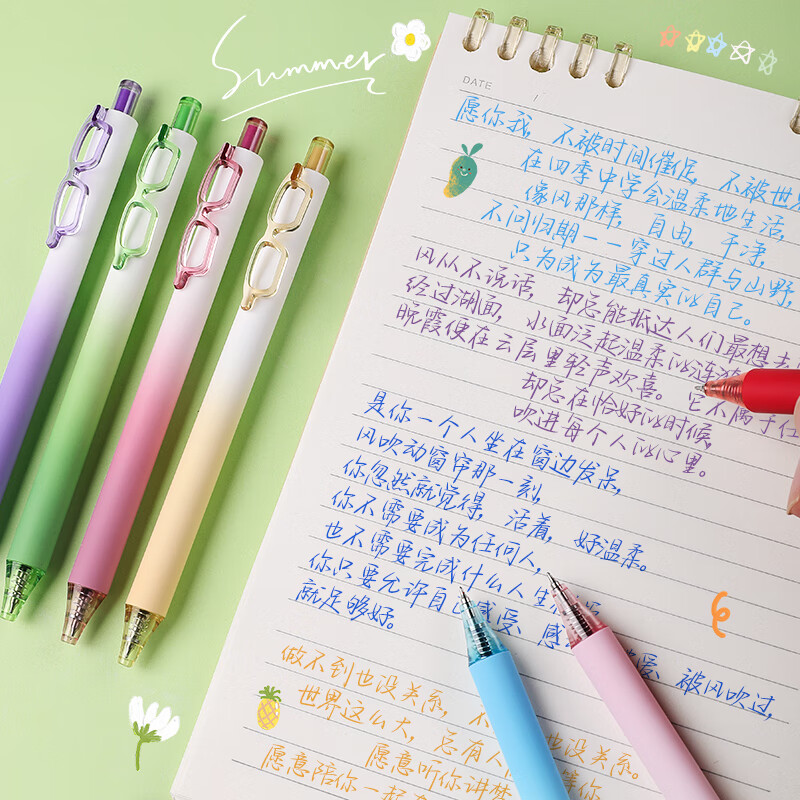 Summer
DATE /
愿你我，不被时间催促，不被世界
在四季中学会温柔地生活，
像风那样，自由，干净，
不问归期一一穿过人群与山野，
只为成为最真实的自己。
风从不说话，却总能抵达人们最想去
经过湖面，水面泛起温柔的涟漪
晚霞便在云层里轻声欢喜。它不属于任
却总在恰好的时候，
吹进每个人的心里。
是你一个人坐在窗边发呆，
风吹动窗帘那一刻，
你忽然就觉得，活着，好温柔。
你不需要成为任何人，
也不需要完成什么人生
你只要允许自己感受、感 爱、被风吹过，
就足够好。
做不到也没关系，不 也没关系。
世界这么大，总有人 等你，
愿意听你讲梦
愿意陪你一起